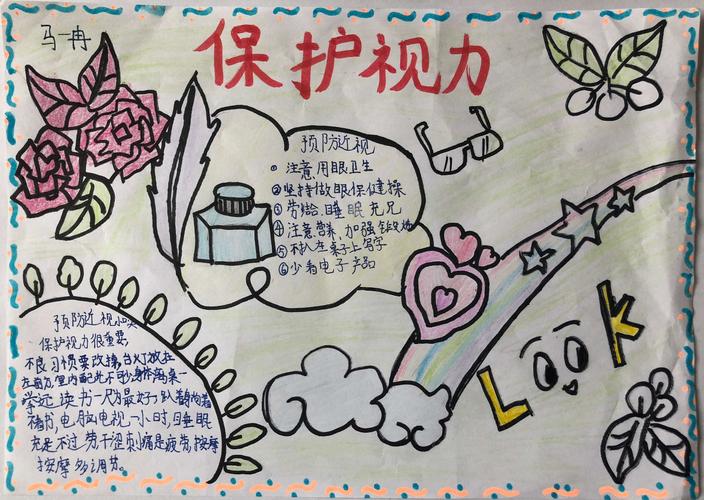 马一冉
保护视力
预防近视
① 注意用眼卫生
②坚持做眼保健操
③ 劳 睡眠充
④ 注意营养 加强锻炼
⑤ 不 在桌子上写字
⑥少看电子产品
LOOK
预防近视
保护视力很重要,
不良习惯要改掉,台灯放在
左前方,室内配光不可少,身 离桌一
拳近 读书一尺 最好 趴着
看书,电脑电视一小时,日睡眠
充足不过劳干涩刺痛是疲劳按摩
按摩多调节。